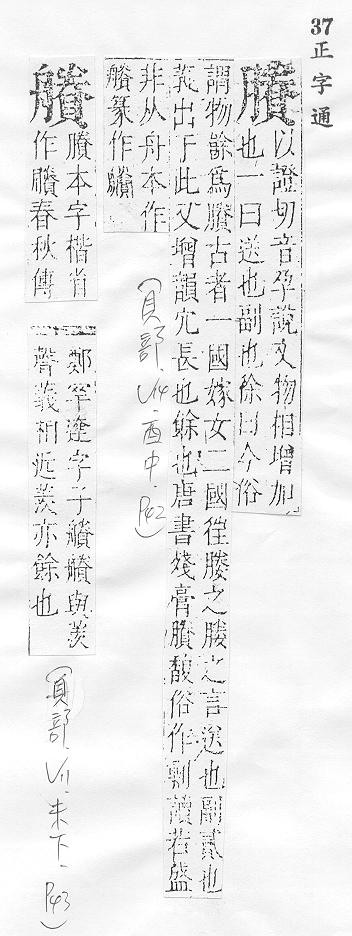 37正字通
賸
以證切音孕說文物相增加
也一曰送也副也徐曰今俗
謂物餘爲賸古者一國嫁女二國徃媵之媵之言送也副貳也
義出于此又增韻宂長也餘也唐書殘膏賸馥俗作剩讀若盛
非从舟本作
賸篆作
(貝部, V14, 酉中, P42)
賸本字楷省
作賸春秋傳
鄭罕達字子
聲義相近羨亦餘也
(貝部, V11, 未下, P43)